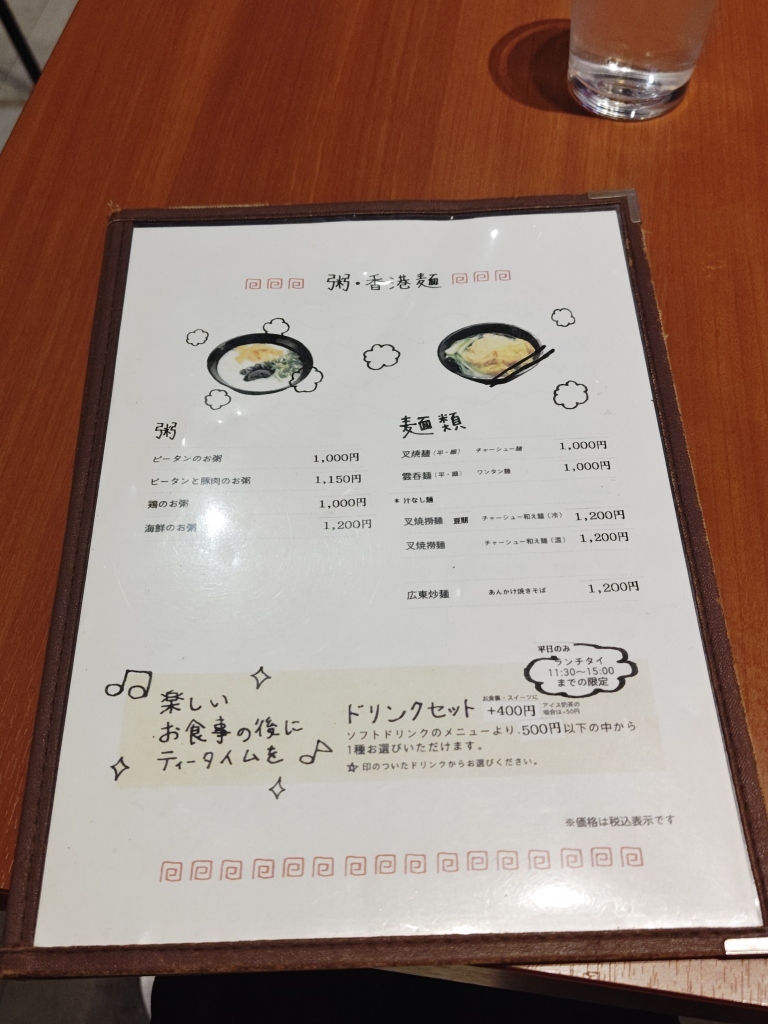 粥・香港麺
粥
ピータンのお粥 1,000円
ピータンと豚肉のお粥 1,150円
鶏のお粥 1,000円
海鮮のお粥 1,200円
麺類
叉焼麺（平・細） チャーシュー麺 1,000円
雲呑麺（平・細） ワンタン麺 1,000円
＊汁なし麺
叉焼撈麺 チャーシュー和え麺（冷） 1,200円
叉焼撈麺 チャーシュー和え麺（温） 1,200円
広東炒麺 あんかけ焼きそば 1,200円
楽しい
お食事の後に
ティータイムを
平日のみ
ランチタイ
11:30～15:00
までの限定
ドリンクセット
お食事・スイーツに
+400円
アイス奶茶の
場合は+50円
ソフトドリンクのメニューより、500円以下の中から
1種お選びいただけます。
☆印のついたドリンクからお選びください。
※価格は税込表示です